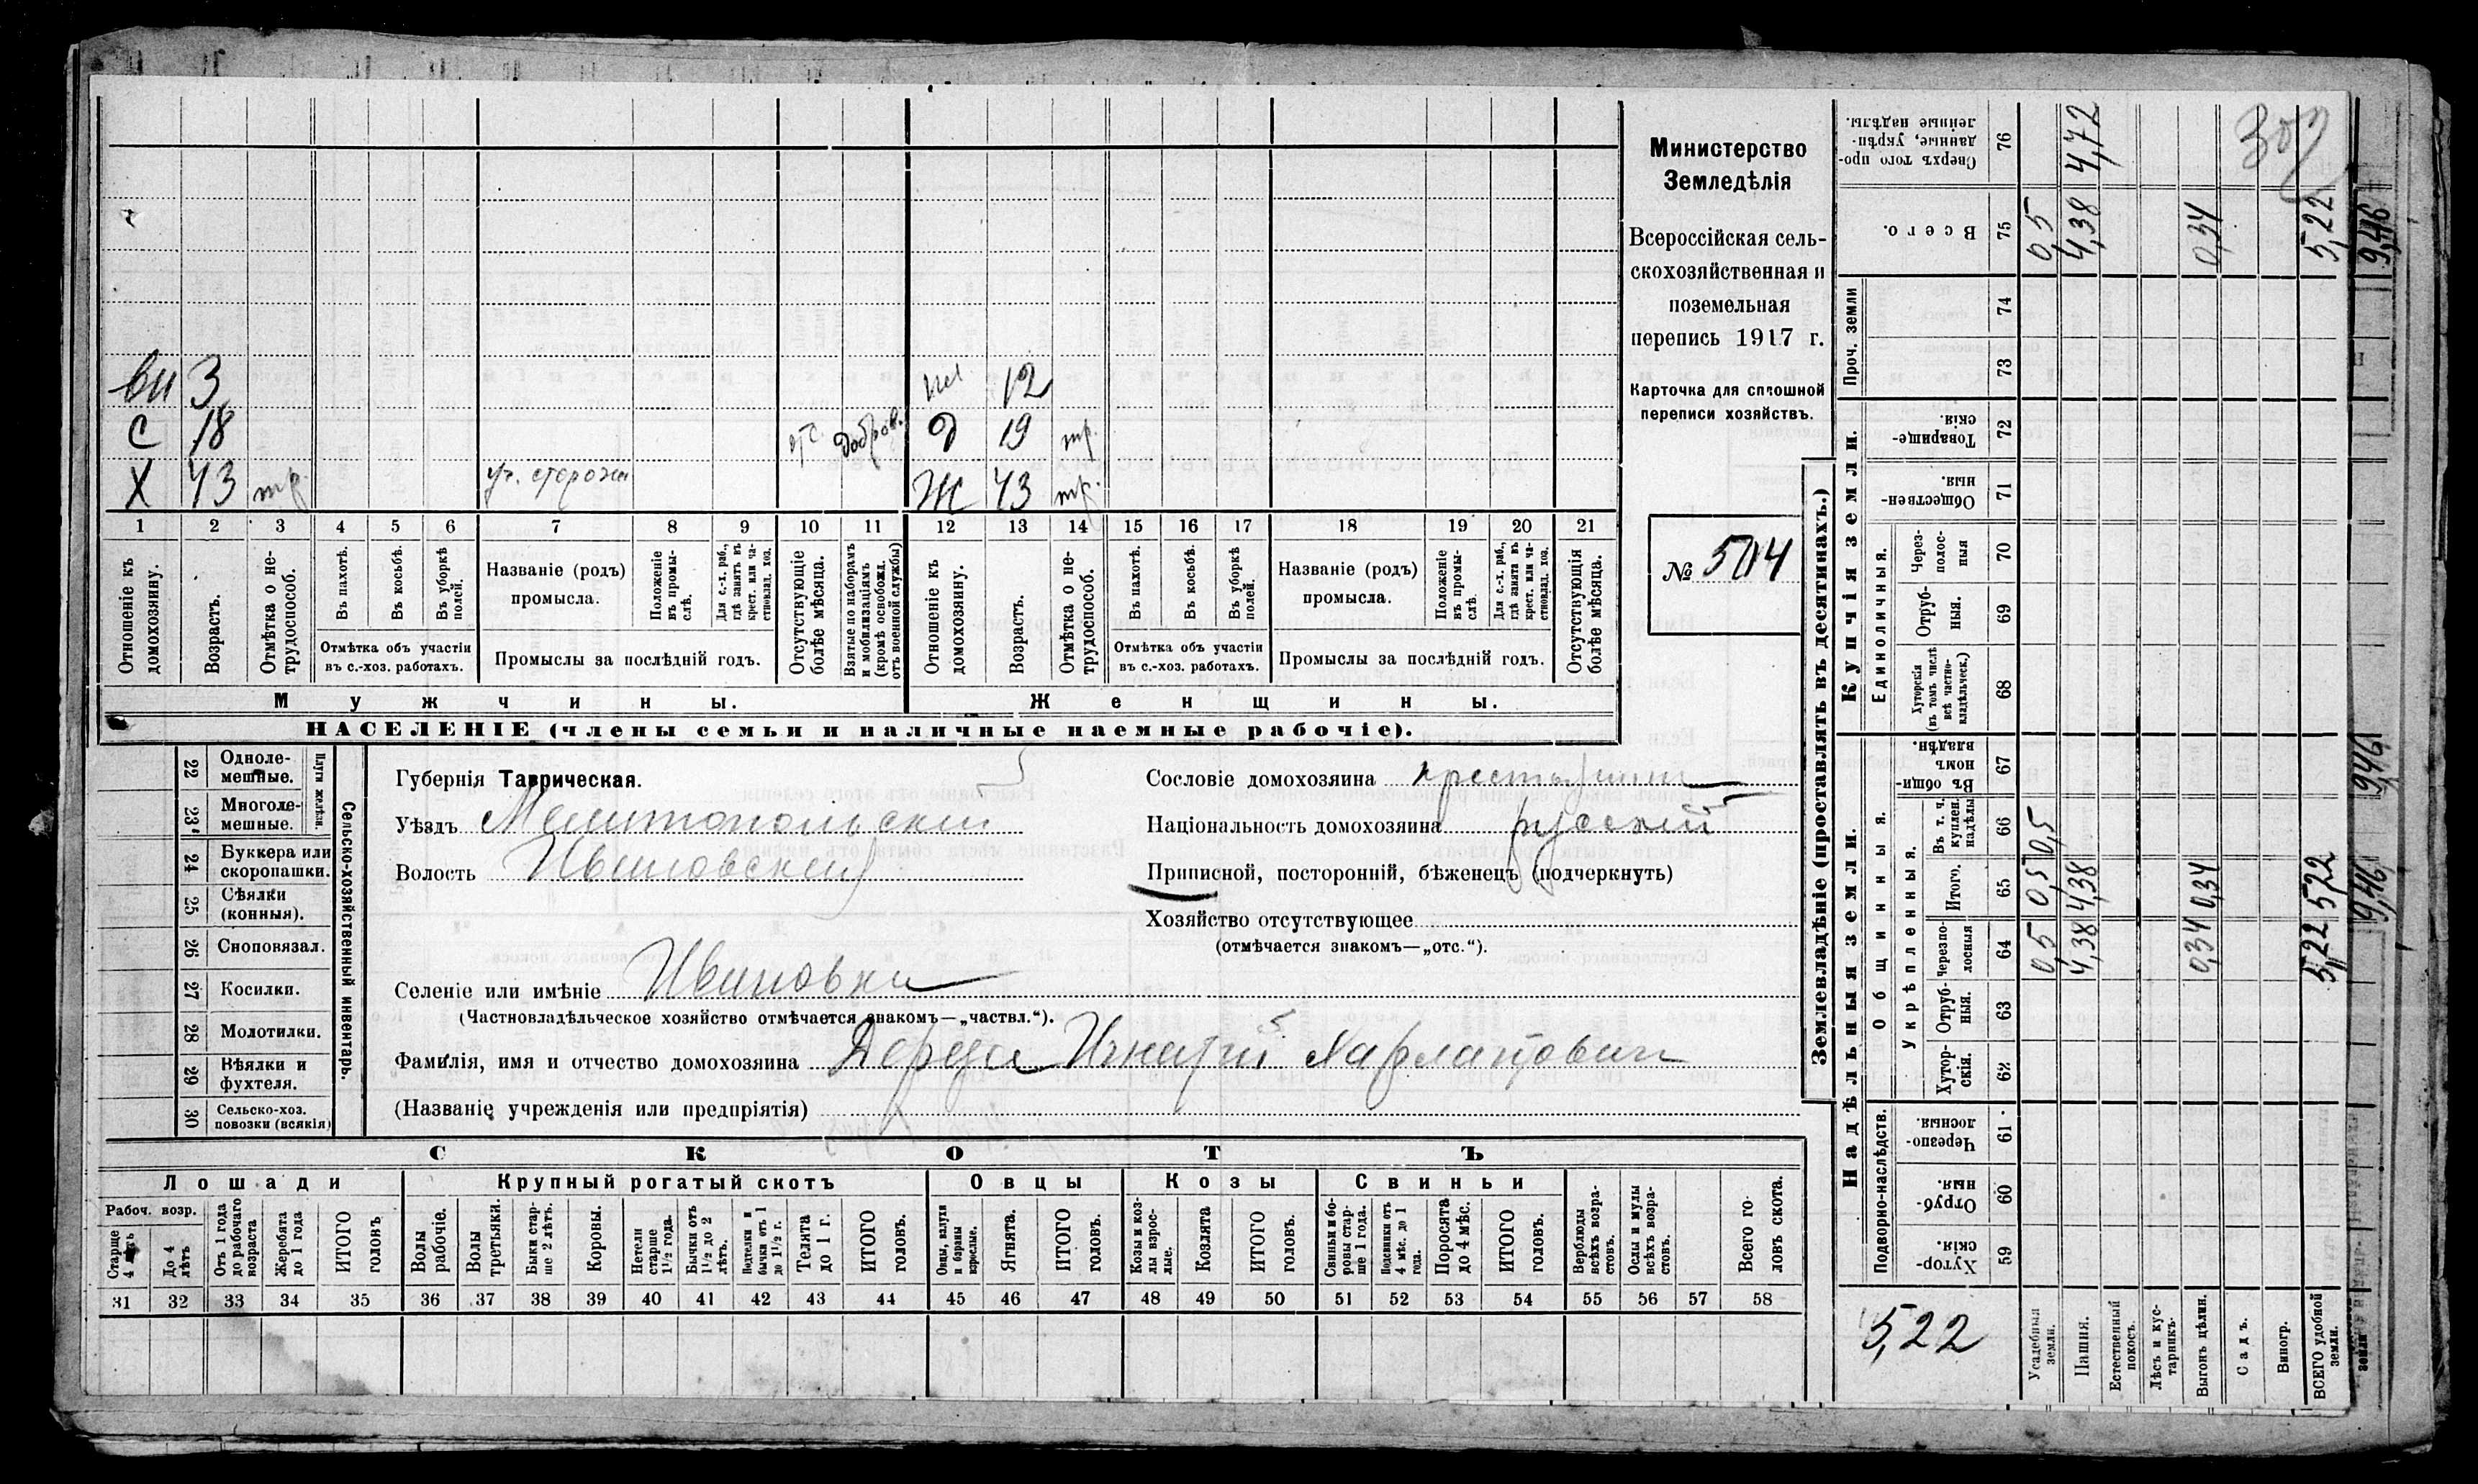 Министерство
Земледѣлія
Всероссійская сель-
скохозяйственная и
поземельная
перепись 1917 г.
Карточка для сплошной
переписи хозяйствъ.
№ 504
вн 3
12
С 18
отс.
добров.
Д 19 тр.
Х 43 тр.
Ж 43 тр.
1 2 3 4 5 6 7 8 9 10 11 12 13 14 15 16 17 18 19 20 21
Отношеніе къ домохозяину.
Возрастъ.
Отмѣтка о не-трудоспособ.
Въ пахотѣ.
Въ косьбѣ.
Въ уборкѣ полей.
Отмѣтка объ участіи
въ с.-хоз. работахъ.
Названіе (родъ)
промысла.
Положеніе въ промы-слѣ.
Для с.-х. раб., гдѣ занятъ въ крест. или ча-стновлад. хоз.
Промыслы за послѣдній годъ.
Отсутствующіе болѣе мѣсяца.
Взятые по наборамъ и мобилизаціямъ (кромѣ освобожд. отъ военной службы)
Отношеніе къ домохозяину.
Возрастъ.
Отмѣтка о не-трудоспособ.
Въ пахотѣ.
Въ косьбѣ.
Въ уборкѣ полей.
Отмѣтка объ участіи
въ с.-хоз. работахъ.
Названіе (родъ)
промысла.
Положеніе въ промы-слѣ.
Для с.-х. раб., гдѣ занята въ крест. или ча-стновлад. хоз.
Промыслы за послѣдній годъ.
Отсутствующія болѣе мѣсяца.
Мужчины.
Женщины.
НАСЕЛЕНІЕ (члены семьи и наличные наемные рабочіе).
Сельско-хозяйственный инвентарь.
Плуги желѣзн.
22 Одноле-мешные.
23 Многоле-мешные.
24 Буккера или скоропашки.
25 Сѣялки (конныя).
26 Сноповязал.
27 Косилки.
28 Молотилки.
29 Вѣялки и фухтеля.
30 Сельско-хоз. повозки (всякія)
Губернія Таврическая.
Уѣздъ Мелитопольскій
Волость Ивановская
Селеніе или имѣніе Ивановка
(Частновладѣльческое хозяйство отмѣчается знакомъ—„частвл.“).
Фамилія, имя и отчество домохозяина Игнатій Харлампович
(Названіе учрежденія или предпріятія)
Сословіе домохозяина крестьянин
Національность домохозяина русский
Приписной, посторонній, бѣженецъ (подчеркнуть)
Хозяйство отсутствующее
(отмѣчается знакомъ—„отс.“).
СКОТЪ
Лошади
Крупный рогатый скотъ
Овцы
Козы
Свиньи
Рабоч. возр.
Старше 4 лѣтъ
До 4 лѣтъ
Отъ 1 года до рабочаго возраста
Жеребята до 1 года
ИТОГО головъ
Волы рабочіе.
Волы третьяки.
Быки стар-ше 2 лѣтъ.
Коровы.
Нетели старше 1½ года.
Бычки отъ 1½ до 2 лѣтъ.
Подтелки и бычки отъ 1 до 1½ г.
Телята до 1 г.
ИТОГО головъ.
Овцы, валухи и бараны взрослые.
Ягнята.
ИТОГО головъ.
Козы и коз-лы взрос-лые.
Козлята
ИТОГО головъ.
Свиньи и бо-ровы стар-ше 1 года.
Подсвинки отъ 4 мѣс. до 1 года.
Поросята до 4 мѣс.
ИТОГО головъ.
Верблюды всѣхъ возра-стовъ.
Ослы и мулы всѣхъ возра-стовъ.
Всего го-ловъ скота.
31 32 33 34 35 36 37 38 39 40 41 42 43 44 45 46 47 48 49 50 51 52 53 54 55 56 57 58
Землевладѣніе (проставлять въ десятинахъ.)
Надѣльныя земли.
Купчія земли.
Проч. земли
Подворно-наслѣдств.
Общинныя.
Укрѣпленныя.
Единоличныя.
Хутор-скія. 59
Отруб-ныя. 60
Черезпо-лосныя. 61
Хутор-скія. 62
Отруб-ныя. 63
Черезпо-лосныя 64
Итого. 65
Въ т. ч. куплен. надѣлы 66
Въ общи-номъ владѣн. 67
Хуторскія (въ томъ числѣ всѣ частно-владѣльческ.) 68
Отруб-ныя. 69
Через-полос-ныя 70
Обществен-ныя. 71
Товарище-скія 72
73
74
Всего. 75
Сверхъ того про-данные, укрѣп-ленные надѣлы. 76
Усадебныя земли. 0,5 0,5 0,5 0,5
Пашня. 4,38 4,38 4,38 4,72
Естественный покосъ.
Лѣсъ и кус-тарникъ.
Выгонъ цѣлин. 0,34 0,34 0,34
Садъ.
Виногр.
ВСЕГО удобной земли. 5,22 5,22 5,22
5,22
9,46
9,46
9,46